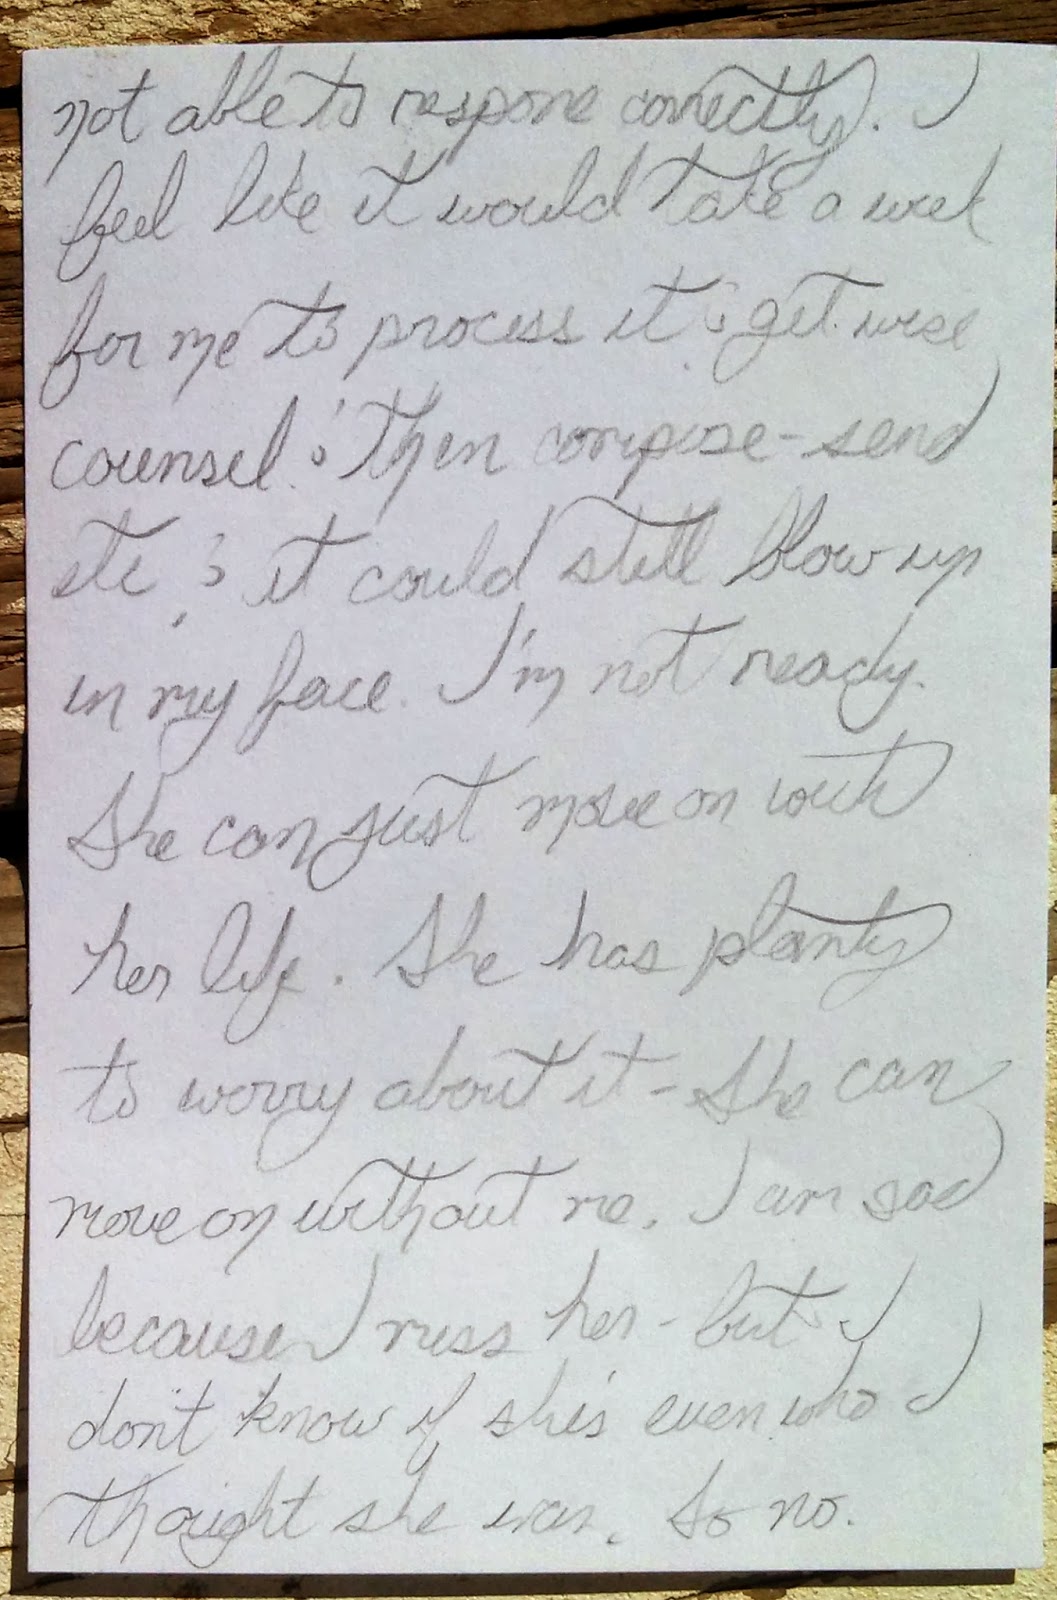 not able to respone correctly. I
feel like it would take a week
for me to process it & get wise
counsel. & then compose - send
etc & it could still blow up
in my face. I'm not ready.
She can just move on with
her life. She has planty
to worry about it - She can
move on without me. I am sad
because I miss her - but I
don't know if she's even who I
thought she was. So no.